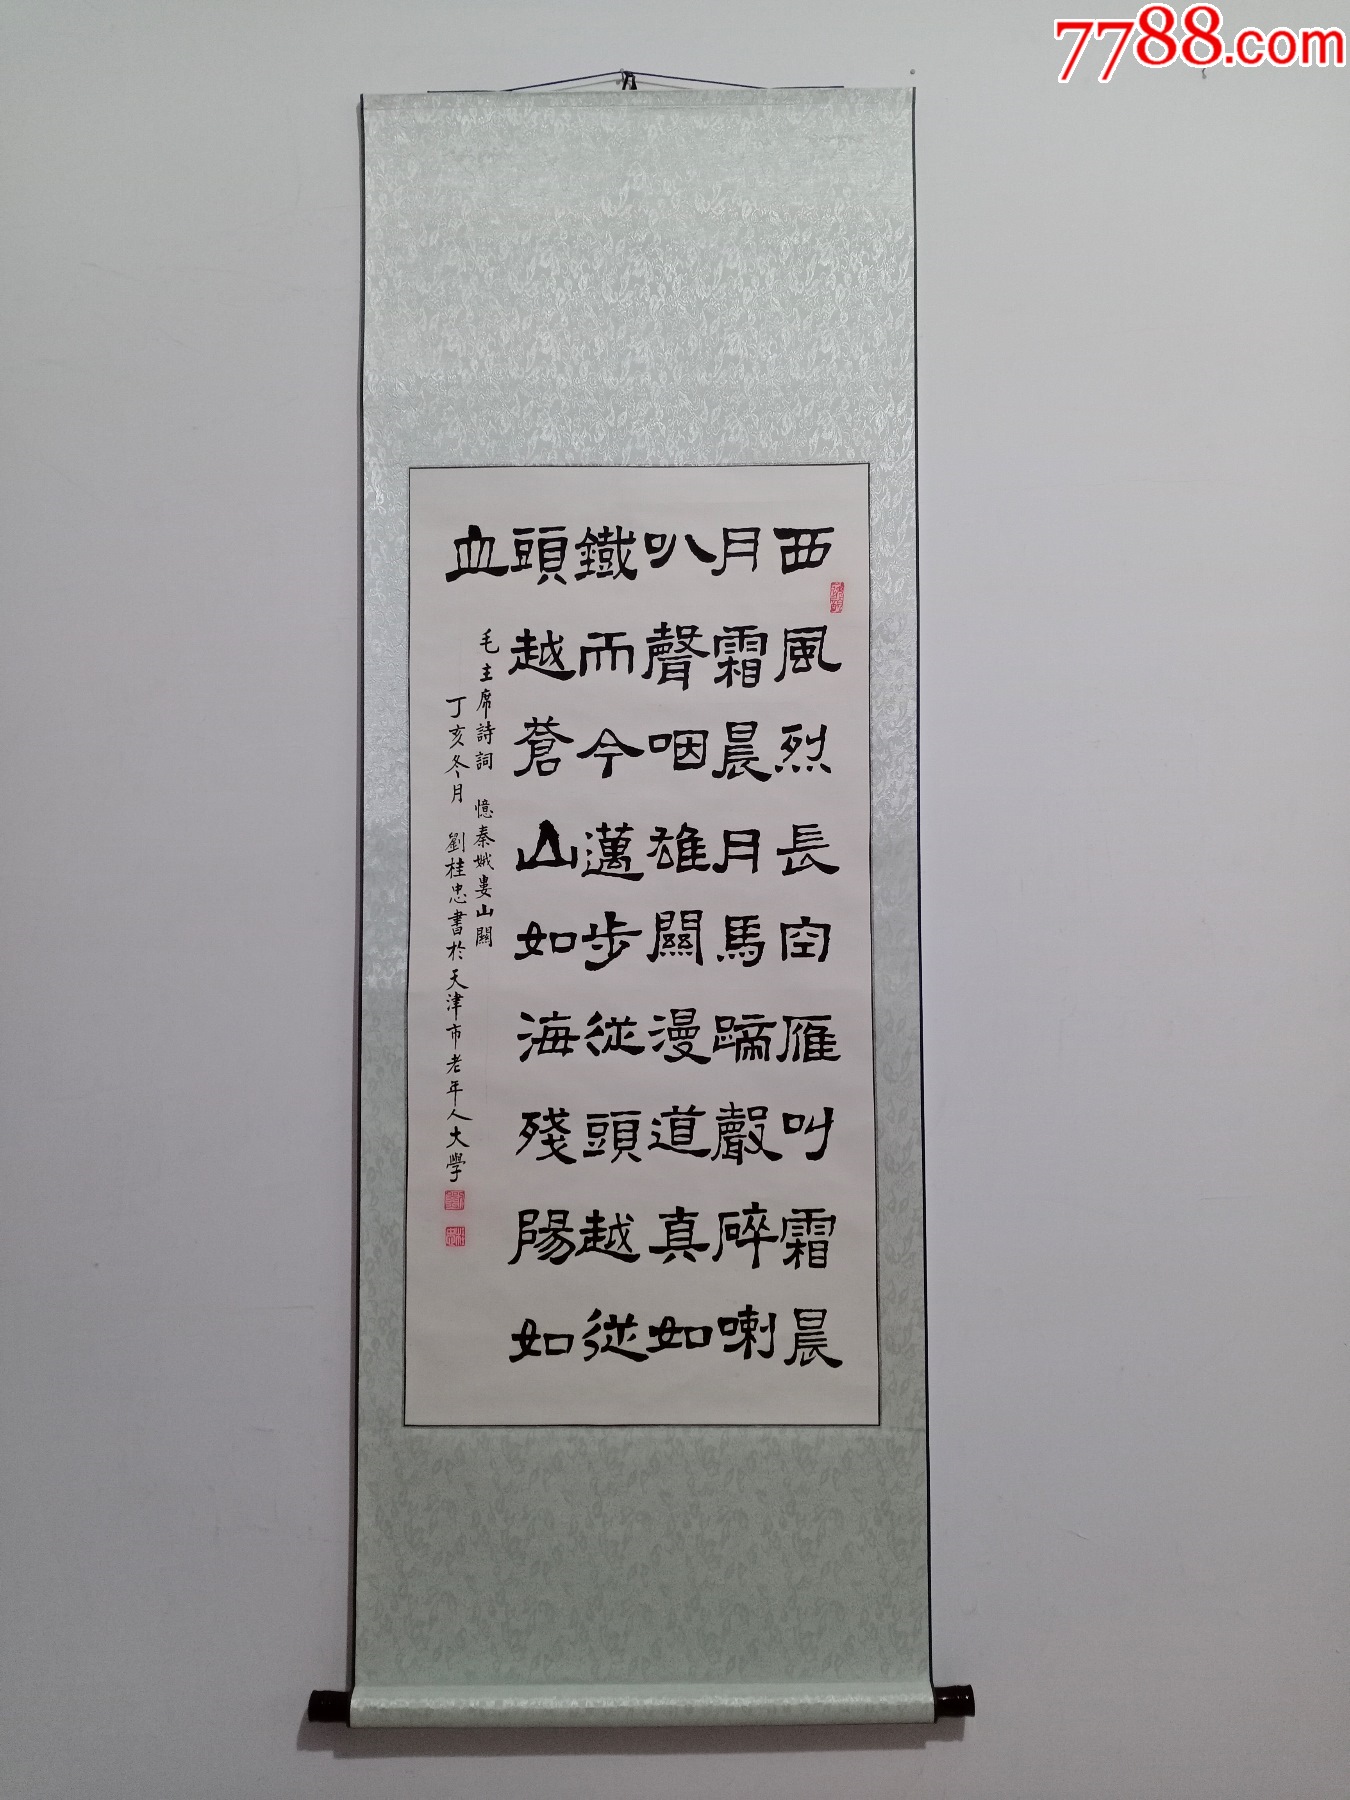 7788.com
西風烈長空雁叫霜晨
月霜晨月馬蹄聲碎喇
叭聲咽雄關漫道真如
鐵而今邁步從頭越從
頭越蒼山如海殘陽如
血
毛主席詩詞 憶秦娥婁山關
丁亥冬月 劉桂忠書於天津市老年人大學